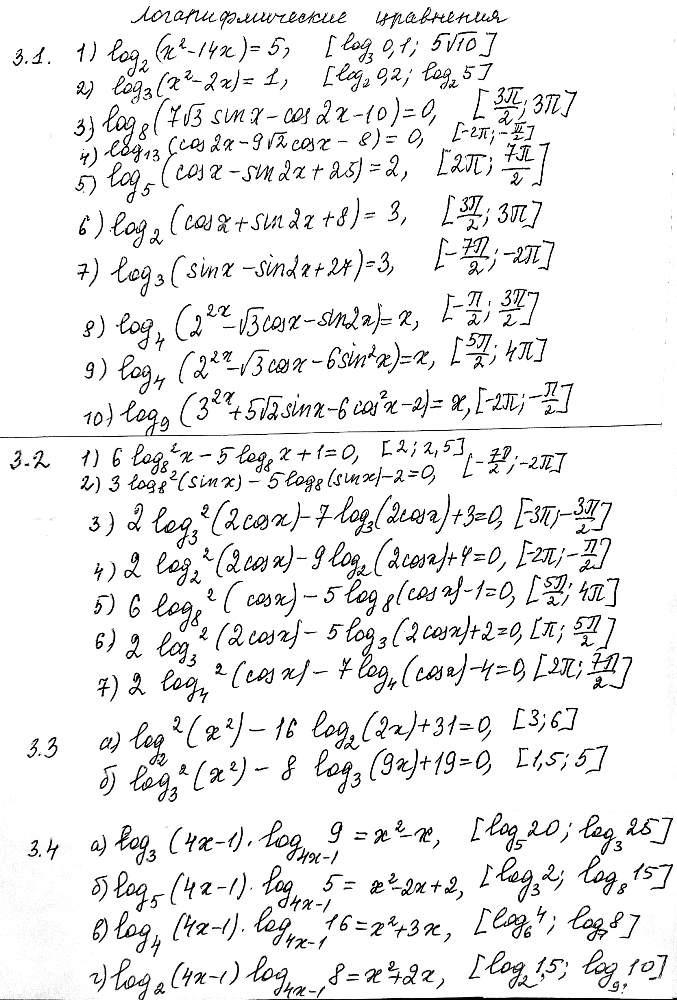 Логарифмические уравнения
3.1. 1) log₂(x²-14x) = 5, [log₃ 0,1; 5√10]
2) log₃(x²-2x) = 1, [log₂ 0,2; log₂ 5]
3) log₈(7√3 sinx - cos2x - 10) = 0, [3π/2; 3π]
4) log₁₃(cos2x - 9√2 cosx - 8) = 0, [-2π; -π/2]
5) log₅(cosx - sin2x + 25) = 2, [2π; 7π/2]
6) log₂(cosx + sin2x + 8) = 3, [3π/2; 3π]
7) log₃(sinx - sin2x + 27) = 3, [-7π/2; -2π]
8) log₄(2²ˣ - √3 cosx - sin2x) = x, [-π/2; 3π/2]
9) log₄(2²ˣ - √3 cosx - 6sin²x) = x, [5π/2; 4π]
10) log₉(3²ˣ + 5√2 sinx - 6cos²x - 2) = x, [-2π; -π/2]
3.2 1) 6 log₈²x - 5 log₈x + 1 = 0, [2; 2,5]
2) 3 log₈²(sinx) - 5 log₈(sinx) - 2 = 0, [-7π/2; -2π]
3) 2 log₃²(2cosx) - 7 log₃(2cosx) + 3 = 0, [-3π; -3π/2]
4) 2 log₂²(2cosx) - 9 log₂(2cosx) + 4 = 0, [-2π; -π/2]
5) 6 log₈²(cosx) - 5 log₈(cosx) - 1 = 0, [5π/2; 4π]
6) 2 log₃²(2cosx) - 5 log₃(2cosx) + 2 = 0, [π; 5π/2]
7) 2 log₄²(cosx) - 7 log₄(cosx) - 4 = 0, [2π; 7π/2]
3.3 а) log₂²(x²) - 16 log₂(2x) + 31 = 0, [3; 6]
б) log₃²(x²) - 8 log₃(9x) + 19 = 0, [1,5; 5]
3.4 а) log₃(4x-1) · log₄ₓ₋₁ 9 = x² - x, [log₅ 20; log₃ 25]
б) log₅(4x-1) · log₄ₓ₋₁ 5 = x² - 2x + 2, [log₃ 2; log₈ 15]
в) log₄(4x-1) · log₄ₓ₋₁ 16 = x² + 3x, [log₆ 4; log₇ 8]
г) log₂(4x-1) log₄ₓ₋₁ 8 = x² + 2x, [log₂ 1,5; log₉ 10]